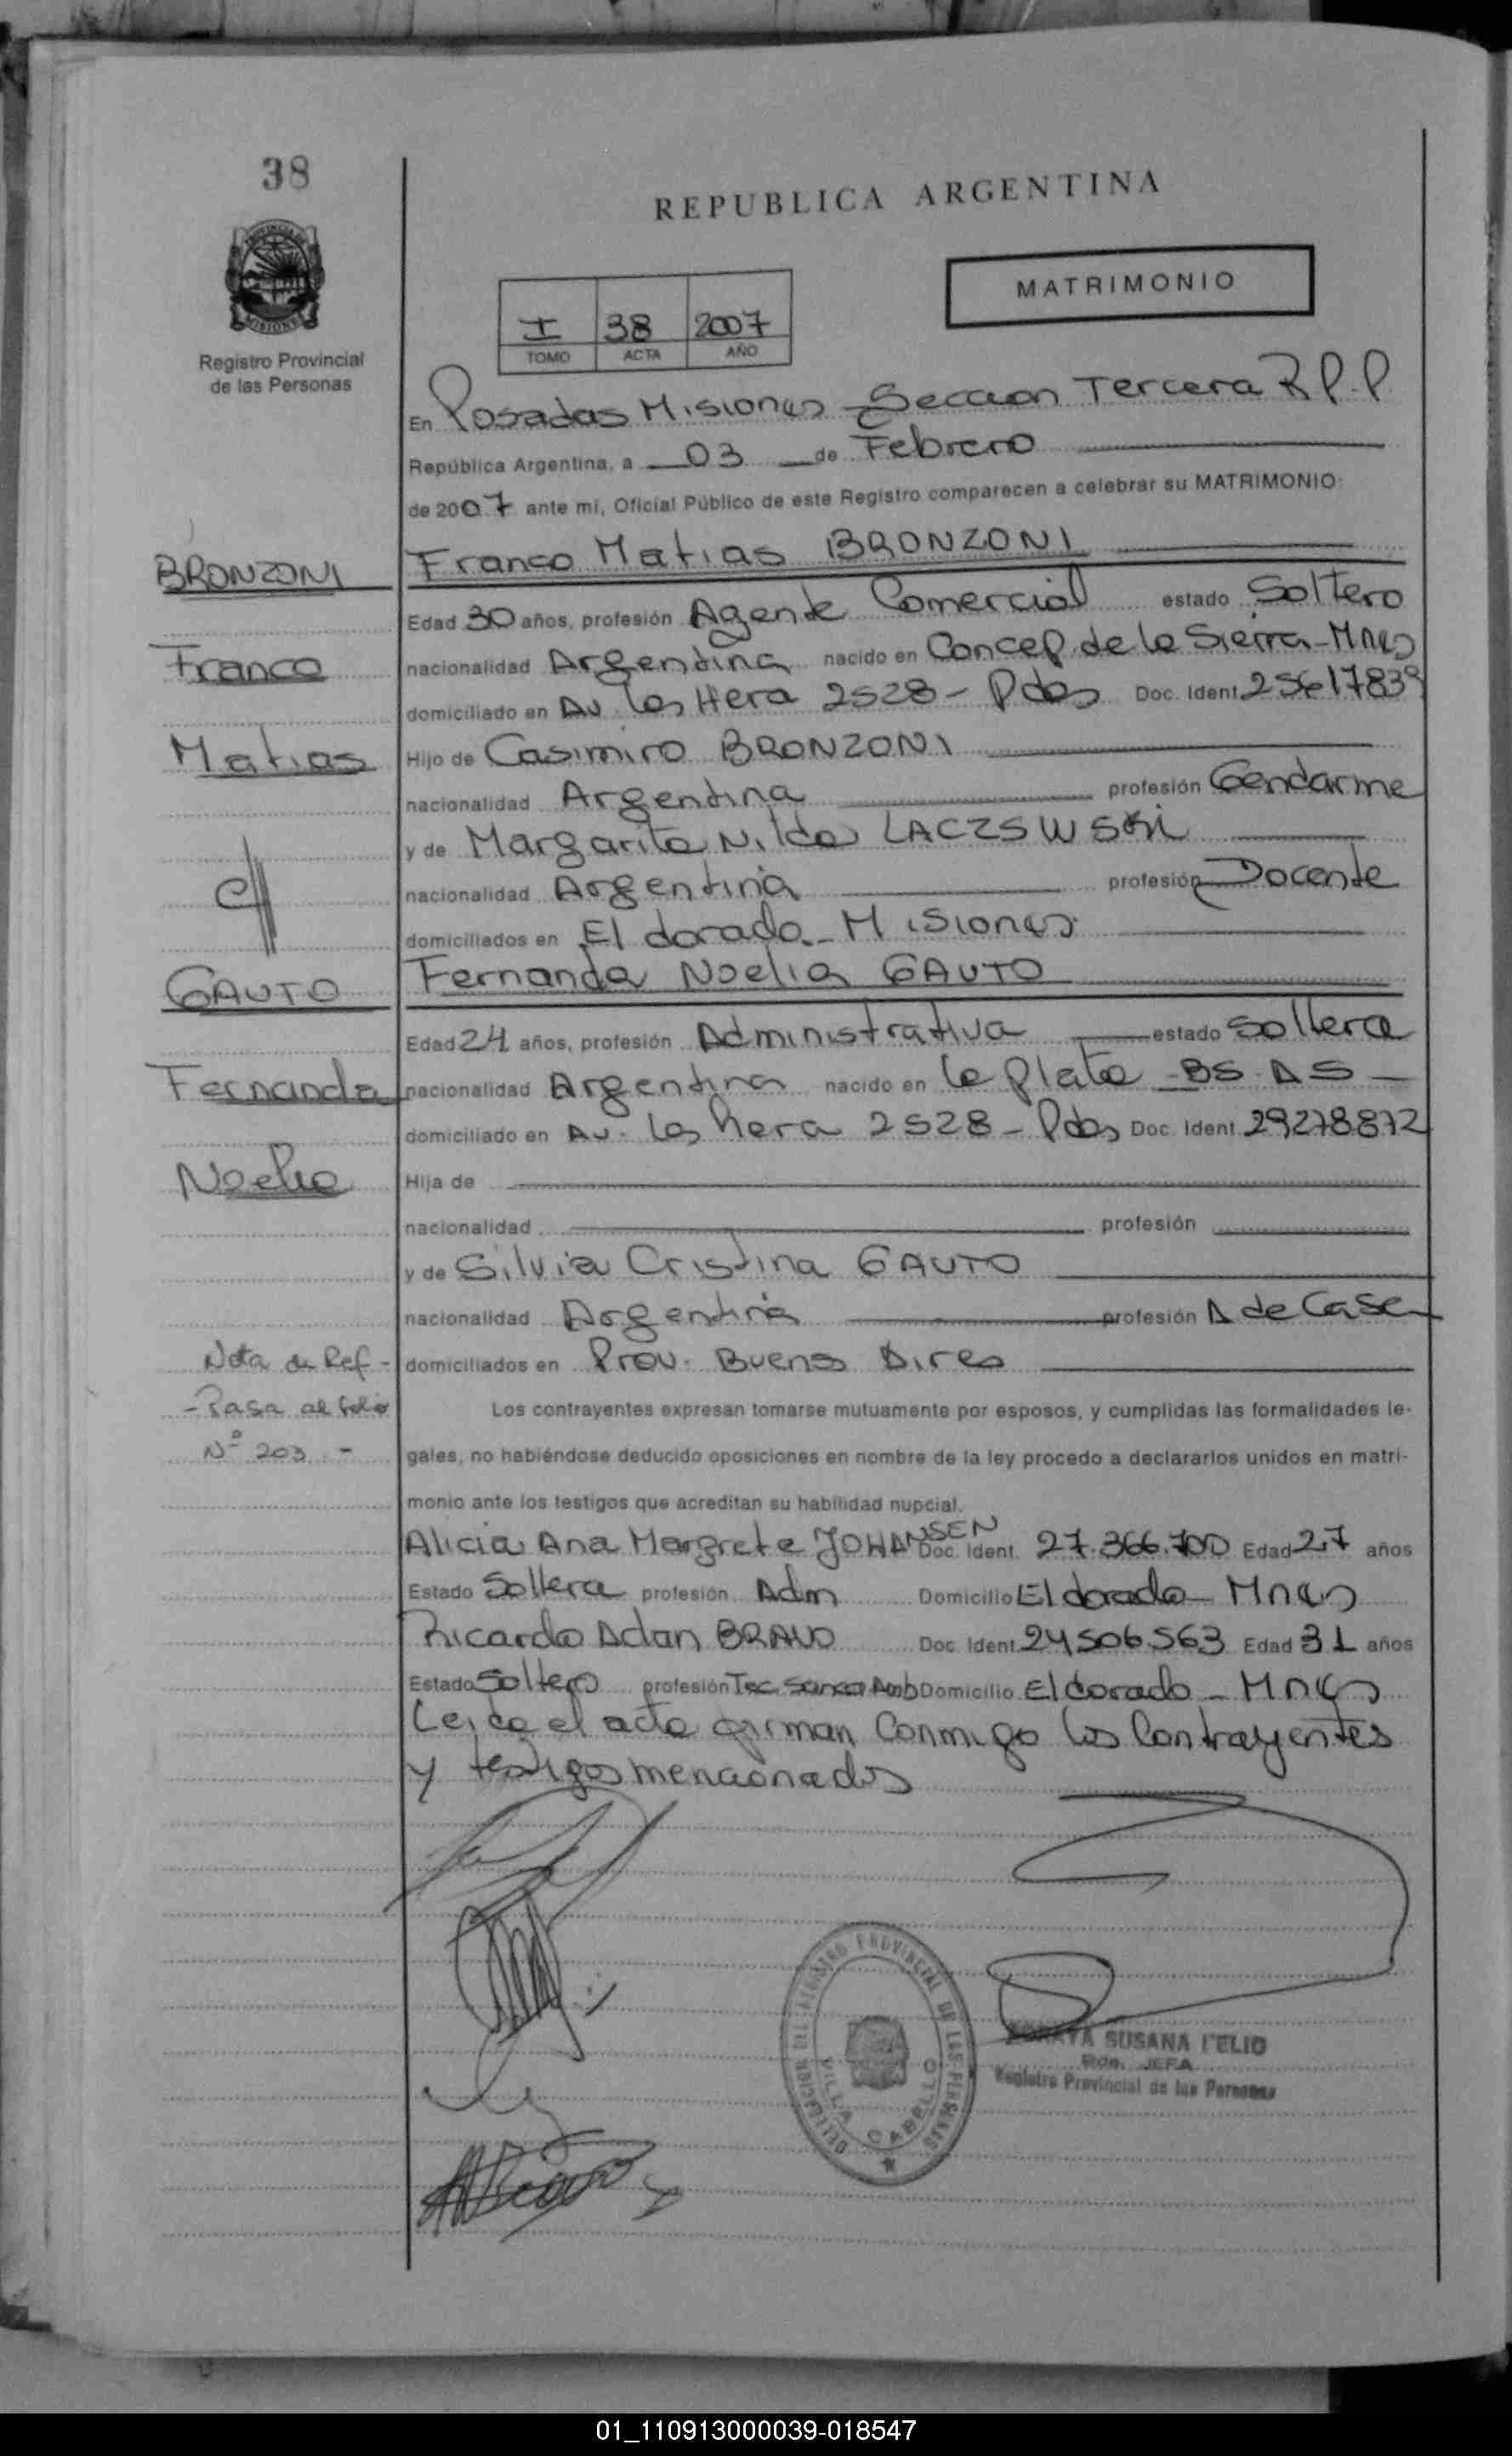 38
REPUBLICA ARGENTINA
MATRIMONIO
I 38 2007
TOMO ACTA AÑO
Registro Provincial
de las Personas
En Posadas Misiones - Seccion Tercera R.P.P
República Argentina, a 03 de Febrero
de 2007 ante mí, Oficial Público de este Registro comparecen a celebrar su MATRIMONIO:
BRONZONI Franco Matias BRONZONI
Edad 30 años, profesión Agente Comercial estado Soltero
Franco nacionalidad Argentina nacido en Concep. de la Sierra - Mnes
domiciliado en Av. las Hera 2528 - Pdas Doc. Ident. 25617839
Matias Hijo de Casimiro BRONZONI
nacionalidad Argentina profesión Gendarme
y de Margarita Nilda LACZSWSKI
nacionalidad Argentina profesión Docente
domiciliados en El dorado - Misiones
GAUTO Fernanda Noelia GAUTO
Edad 24 años, profesión Administrativa estado Soltera
Fernanda nacionalidad Argentina nacido en la Plata - BS AS -
domiciliado en Av. las hera 2528 - Pdas Doc. Ident. 29278872
Noelia Hija de
nacionalidad profesión
y de Silvia Cristina GAUTO
nacionalidad Argentina profesión A de Casa
Nota de Ref - domiciliados en Prov. Buenos Aires
- Pasa al folio Los contrayentes expresan tomarse mutuamente por esposos, y cumplidas las formalidades le-
Nº 203. - gales, no habiéndose deducido oposiciones en nombre de la ley procedo a declararlos unidos en matri-
monio ante los testigos que acreditan su habilidad nupcial.
Alicia Ana Margrete JOHANSEN Doc. Ident. 27.366.700 Edad 27 años
Estado Soltera profesión Adm Domicilio El dorado - Mnes
Ricardo Adan BRAVO Doc. Ident. 24506.563 Edad 31 años
Estado Soltero profesión Tec. Amb Domicilio Eldorado - Mnes
Leida el acta firman Conmigo los Contrayentes
y testigos mencionados
DELEGACION DEL REGISTRO PROVINCIAL DE LAS PERSONAS
VILLA CABELLO
SUSANA
JEFA
Registro Provincial de las Personas
01_110913000039-018547